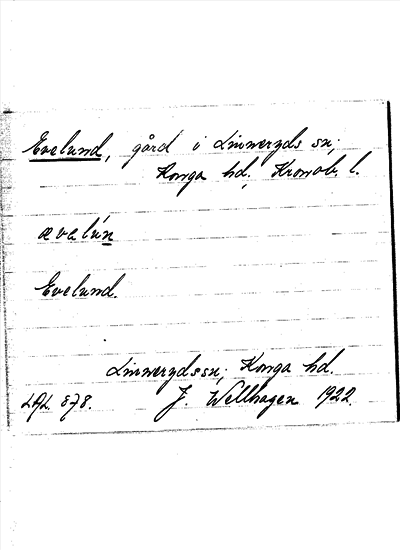 Evelund, gård i Linneryds sn;
Konga hd, Kronob. l.
ævelún
Evelund.
Linnerydssn; Konga hd.
LAL. 878. J. Wellhagen 1922.